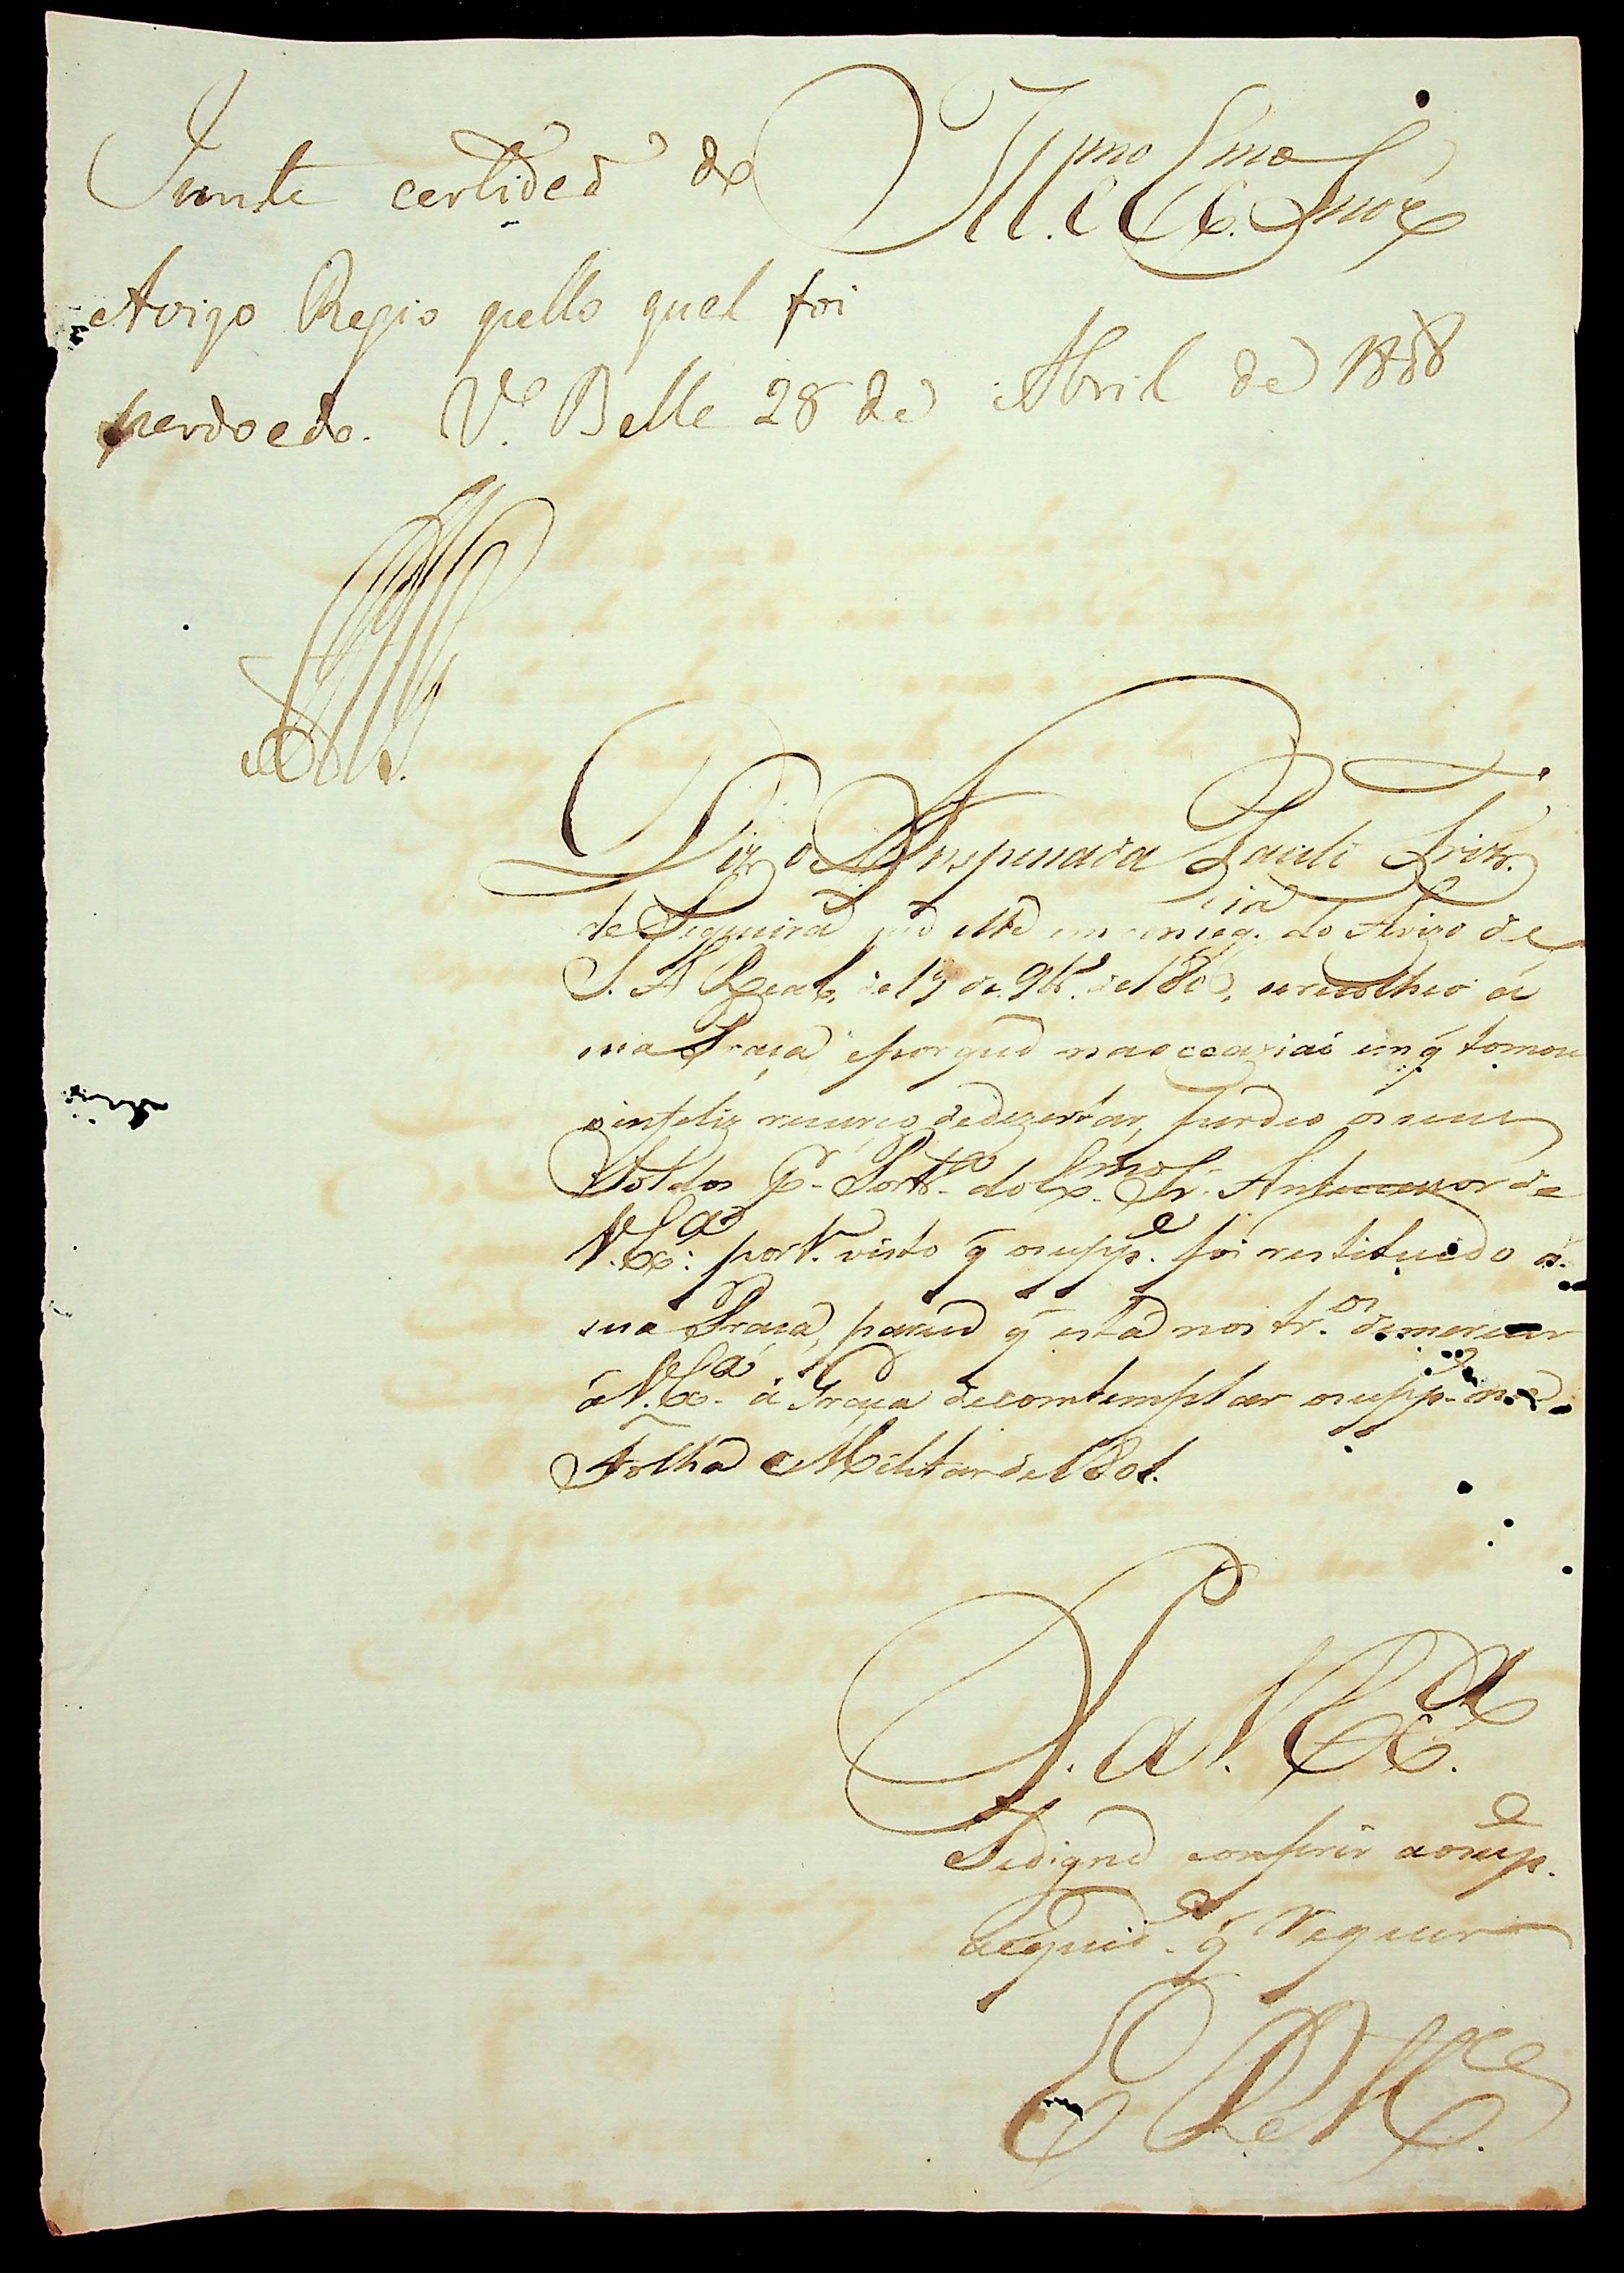 Junte certidaõ do
Avizo Regio pello qual foi
perdoado. V.ª Bella 28 de Abril de 1808
Ill.mo Ex.mo Snor
Diz o Anspesada Paulo Friz.
de Siqueira q̃ elle em conseq.cia do Avizo de
S. A. Real, de 19 de 9br.º de 180, se recolheo á
sua Praça e porque na occaziaõ em q̃ tomou
o infeliz recurço de dezertar, perdeo os seus
Soldos p.r Port.ª do Ex.mo Sr. Antecessor de
V. Ex.ª: port.º visto q̃ o supp.e foi restituido á
sua Praça, parece q̃ está nos tr.os de merecer
á V. Ex.ª a Graça de comtemplar o supp.e na
Folha Militar de 1801.
P. a V. Ex.ª
Se digne conferir ao sup.e
a equid.e q̃ requer
E. R. M.ce